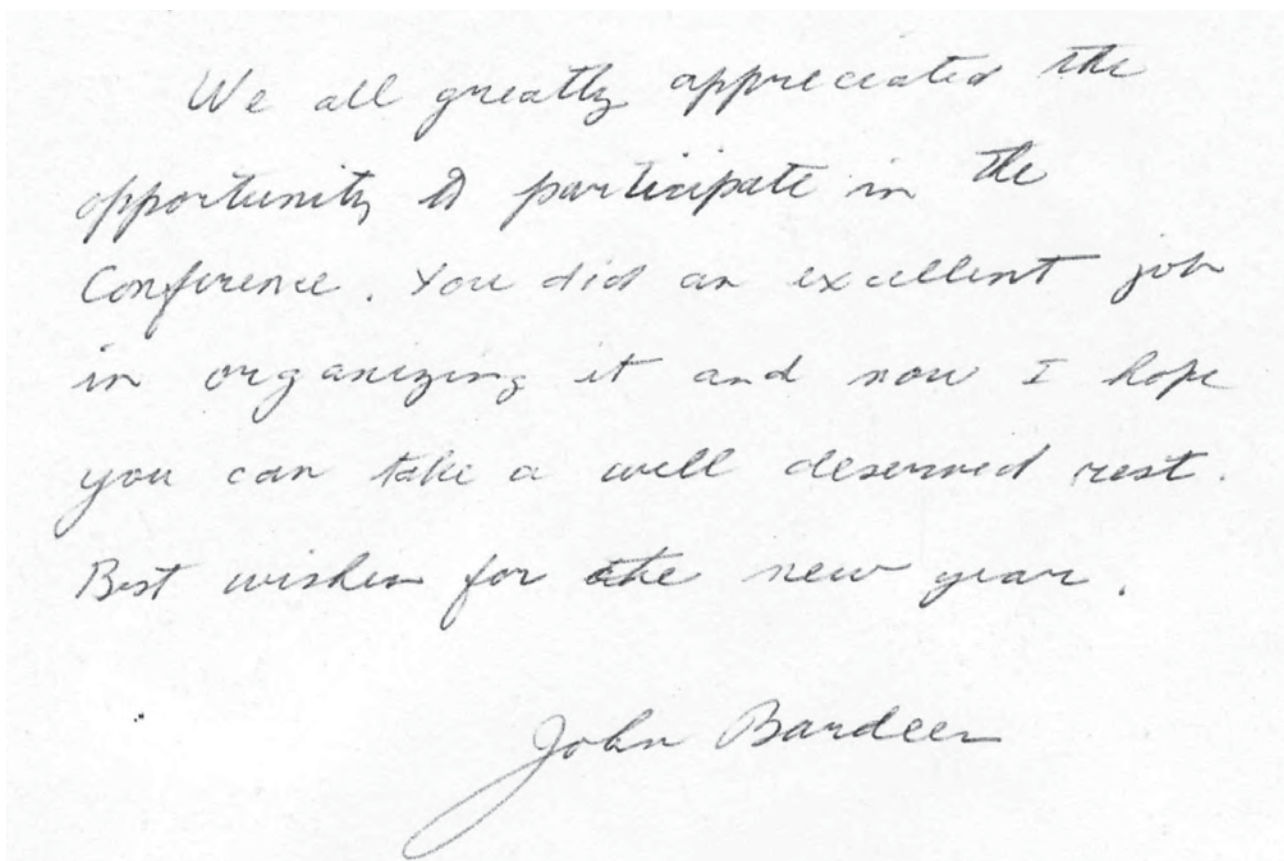 We all greatly appreciated the
opportunity to participate in the
Conference. You did an excellent job
in organizing it and now I hope
you can take a well deserved rest.
Best wishes for the new year.
John Bardeen